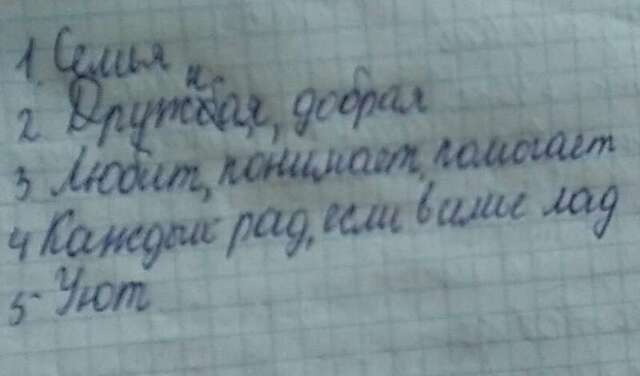 1. Семья
2 Дружная, добрая
3 Любит, понимает, помогает
4 Каждый рад, если в семье лад
5 Уют